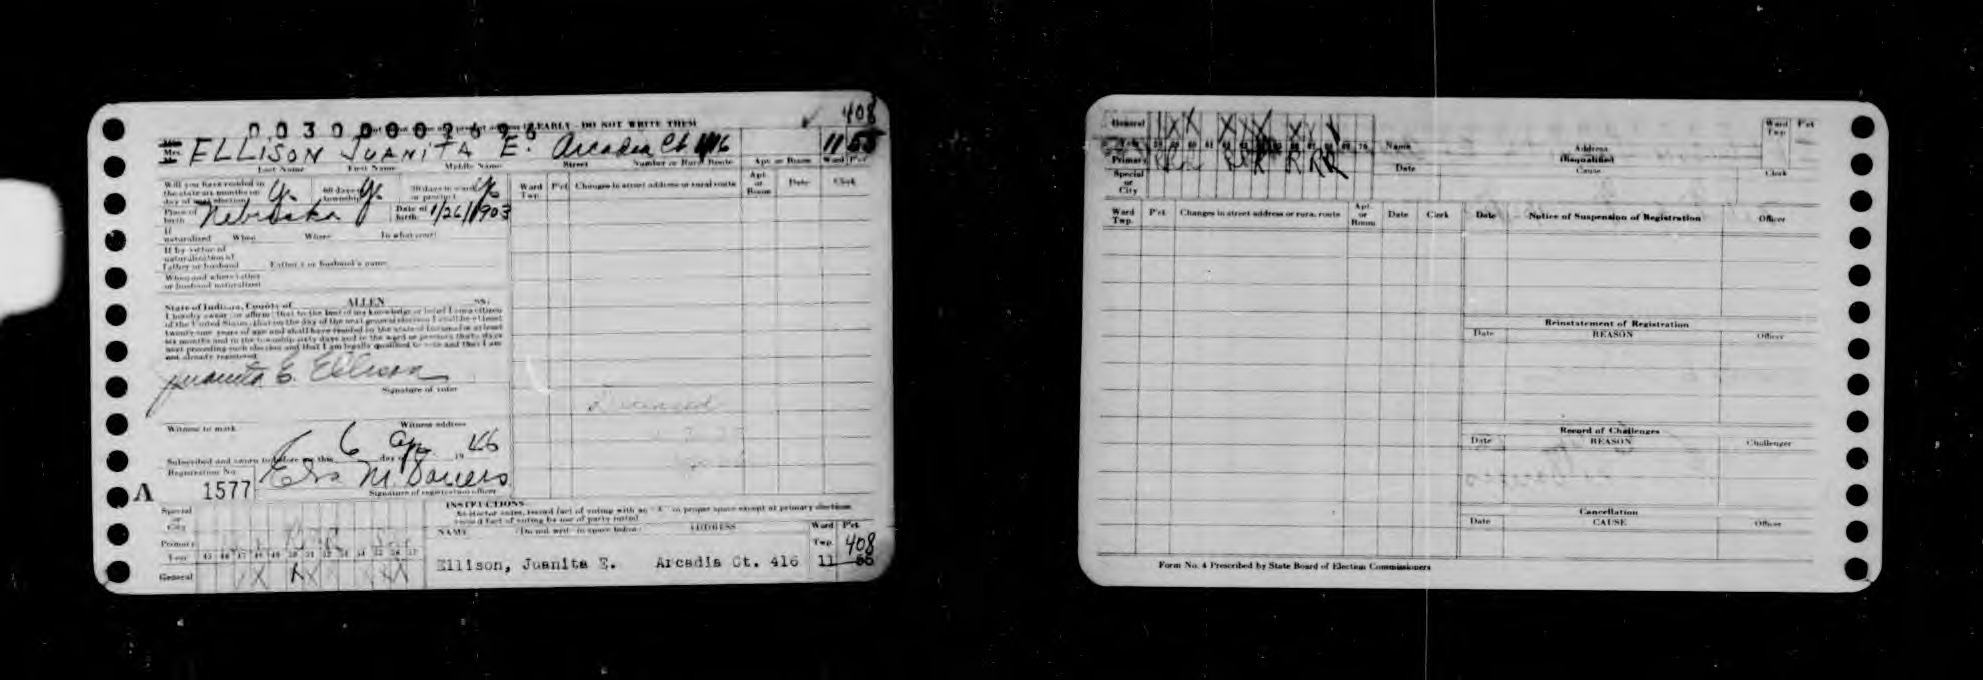 408
EARLY - DO NOT WRITE THEM
Mrs. ELLISON JUANITA E. Arcadia Ct. 416 11 55
Last Name First Name Middle Name Street Number or Rural Route Apt. or Room Ward Pct.
Will you have resided in the state six months on day of next election Y. 60 days in township Y. 30 days in ward or precinct Y.
Place of birth Nebraska Date of birth 1/26/1903
If naturalized When Where In what court
If by virtue of naturalization of Father or husband Father's or husband's name
When and where father or husband naturalized
State of Indiana, County of ALLEN ss.
I hereby swear or affirm that to the best of my knowledge or belief I am a citizen
of the United States, that on the day of the next general election I will be at least
twenty-one years of age and shall have resided in the state of Indiana for at least
six months and in the township sixty days and in the ward or precinct thirty days
next preceding such election and that I am legally qualified to vote and that I am
not already registered.
Juanita E. Ellison
Signature of voter
Witness to mark Witness address
Subscribed and sworn to before me this 6 day of Apr. 19 46
Registration No.
A 1577
Signature of registration officer
Ward Twp. Pct. Changes in street address or rural route Apt. or Room Date Clerk
Deceased
INSTRUCTIONS
As elector votes, record fact of voting with an "X" in proper space except at primary election
record fact of voting by use of party initial
NAME (Do not write in space below) ADDRESS Ward Twp. Pct.
Special or City
Primary
Year 45 46 47 48 49 50 51 52 53 54 55 56 57
General
408
Ellison, Juanita E. Arcadia Ct. 416 11 55
General
Year
Primary
Special or City
Name Address
(Disqualified)
Date Cause Clerk
Ward Twp. Pct.
Ward Twp. P'ct Changes in street address or rural route Apt. or Room Date Clerk
Date Notice of Suspension of Registration Officer
Reinstatement of Registration
Date REASON Officer
Record of Challenges
Date REASON Challenger
Cancellation
Date CAUSE Officer
Form No. 4 Prescribed by State Board of Election Commissioners